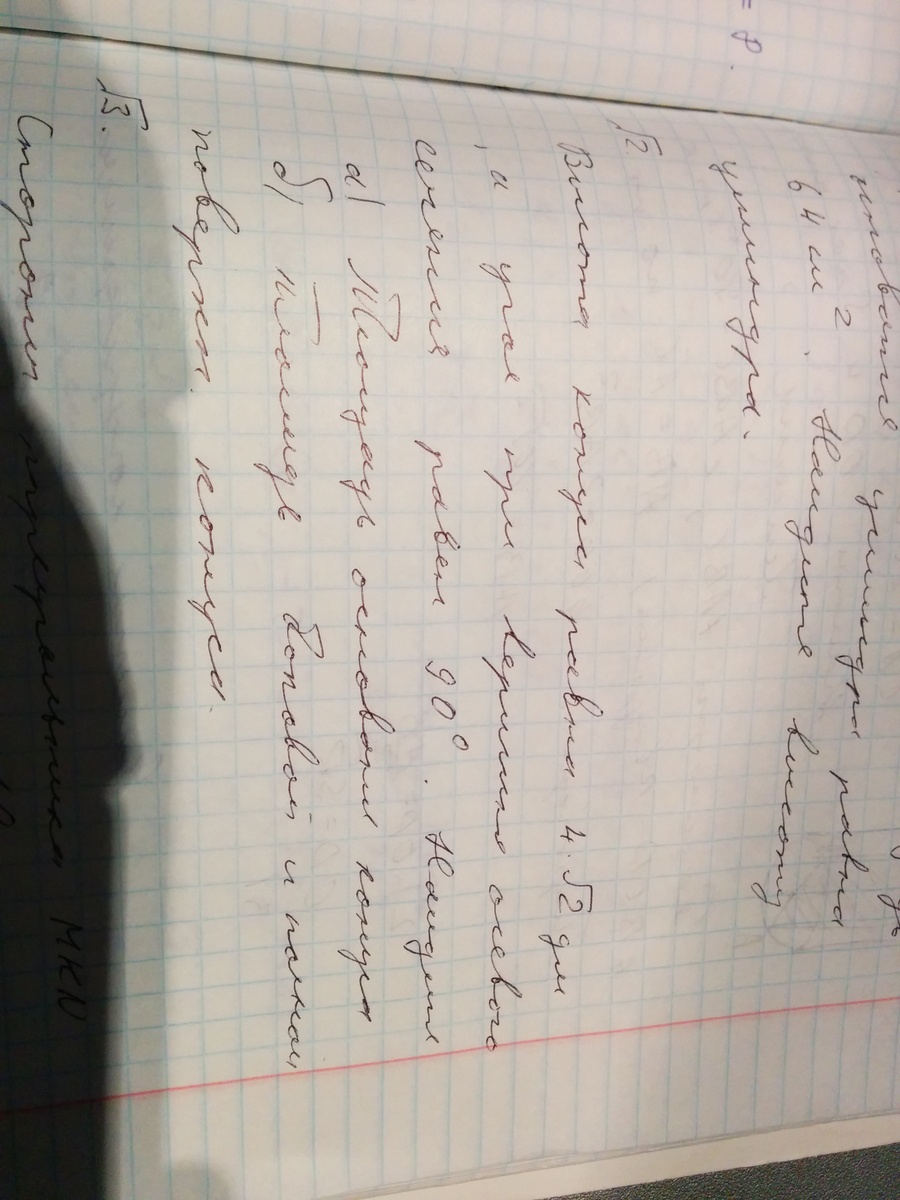 = 8.
основания цилиндра равна
64 см². Найдите высоту
цилиндра.
√2.
Высота конуса равна 4·√2 дм
, и угол при вершине осевого
сечения равен 90°. Найдите
а) Площадь основан конуса
б) площадь боковой и полной
поверхн. конуса.
√3.
Стороны треугольника MKN